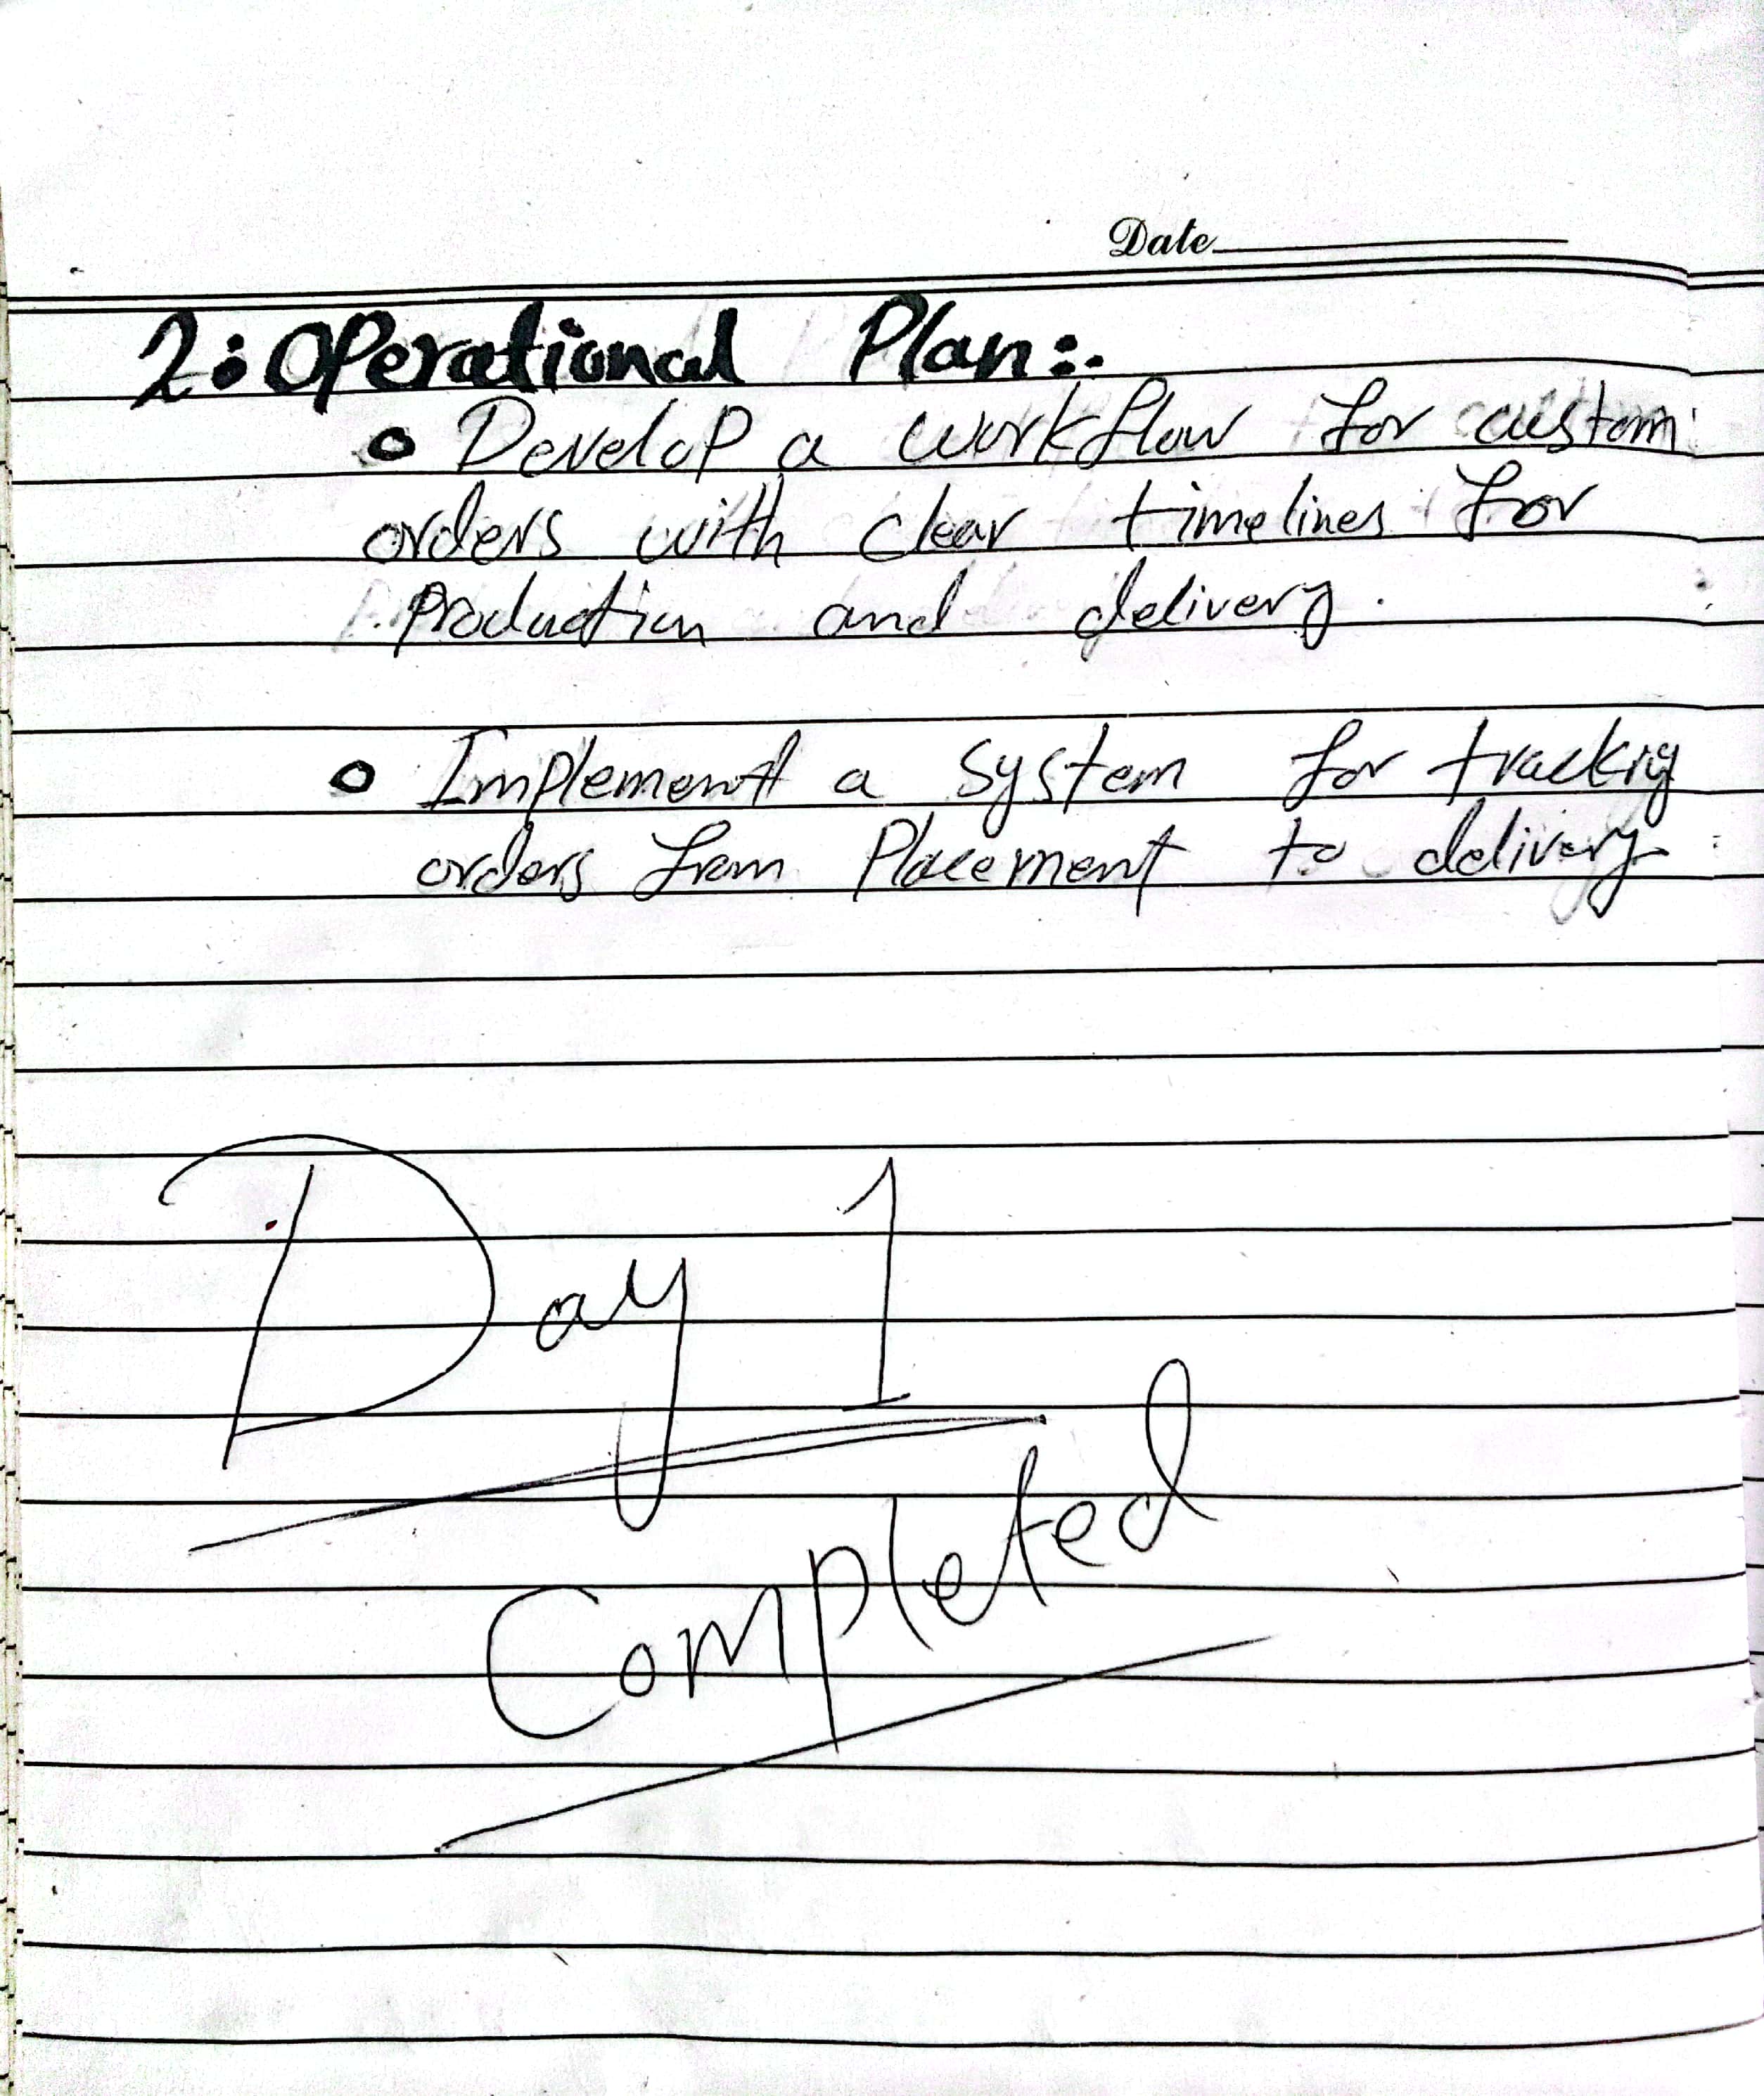 Date
2: Operational Plan:-
o Develop a workflow for custom
orders with clear timelines for
Production and delivery.
o Implement a system for tracking
orders from Placement to delivery
Day 1
Completed